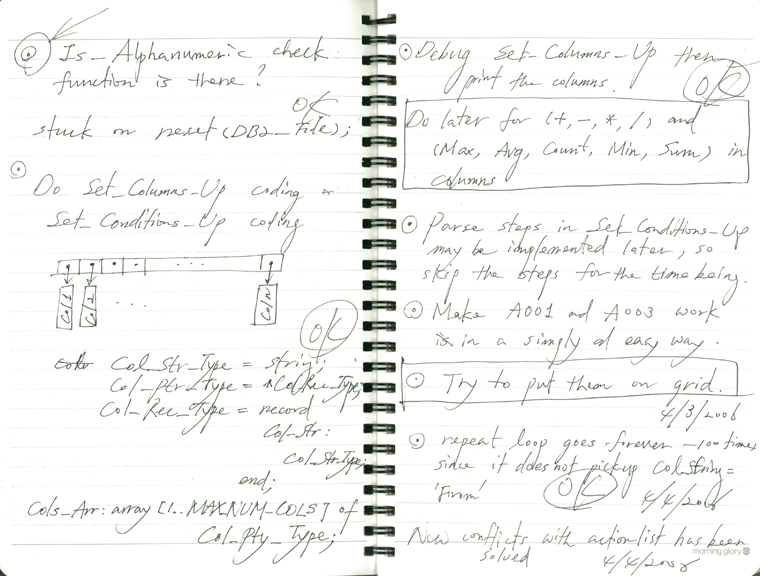 Is_Alphanumeric check
function is there?
OK
stuck on reset(DB2_File);
Do Set_Columns_Up coding
Set_Conditions_Up coding
Col1 Col2 . . . Coln
OK
Col_Str_Type = string;
Col_Ptr_Type = ^Col_Rec_Type;
Col_Rec_Type = record
Col_Str:
Col_Str_Type;
end;
Cols_Arr: array [1..MAXNUM_COLS] of
Col_Pty_Type;
Debug Set_Columns_Up then
print the columns.
OK
Do later for (+, -, *, /) and
(Max, Avg, Count, Min, Sum) in
columns
Parse steps in Set_Conditions_Up
may be implemented later, so
skip the steps for the time being.
Make A001 ad A003 work
in a simply ad easy way.
Try to put them on grid.
4/3/2006
repeat loop goes forever -100 times
since it does not pickup Col_String =
'From'
OK
4/4/2006
New conflicts with action list has been
solved
4/4/2006
morning glory